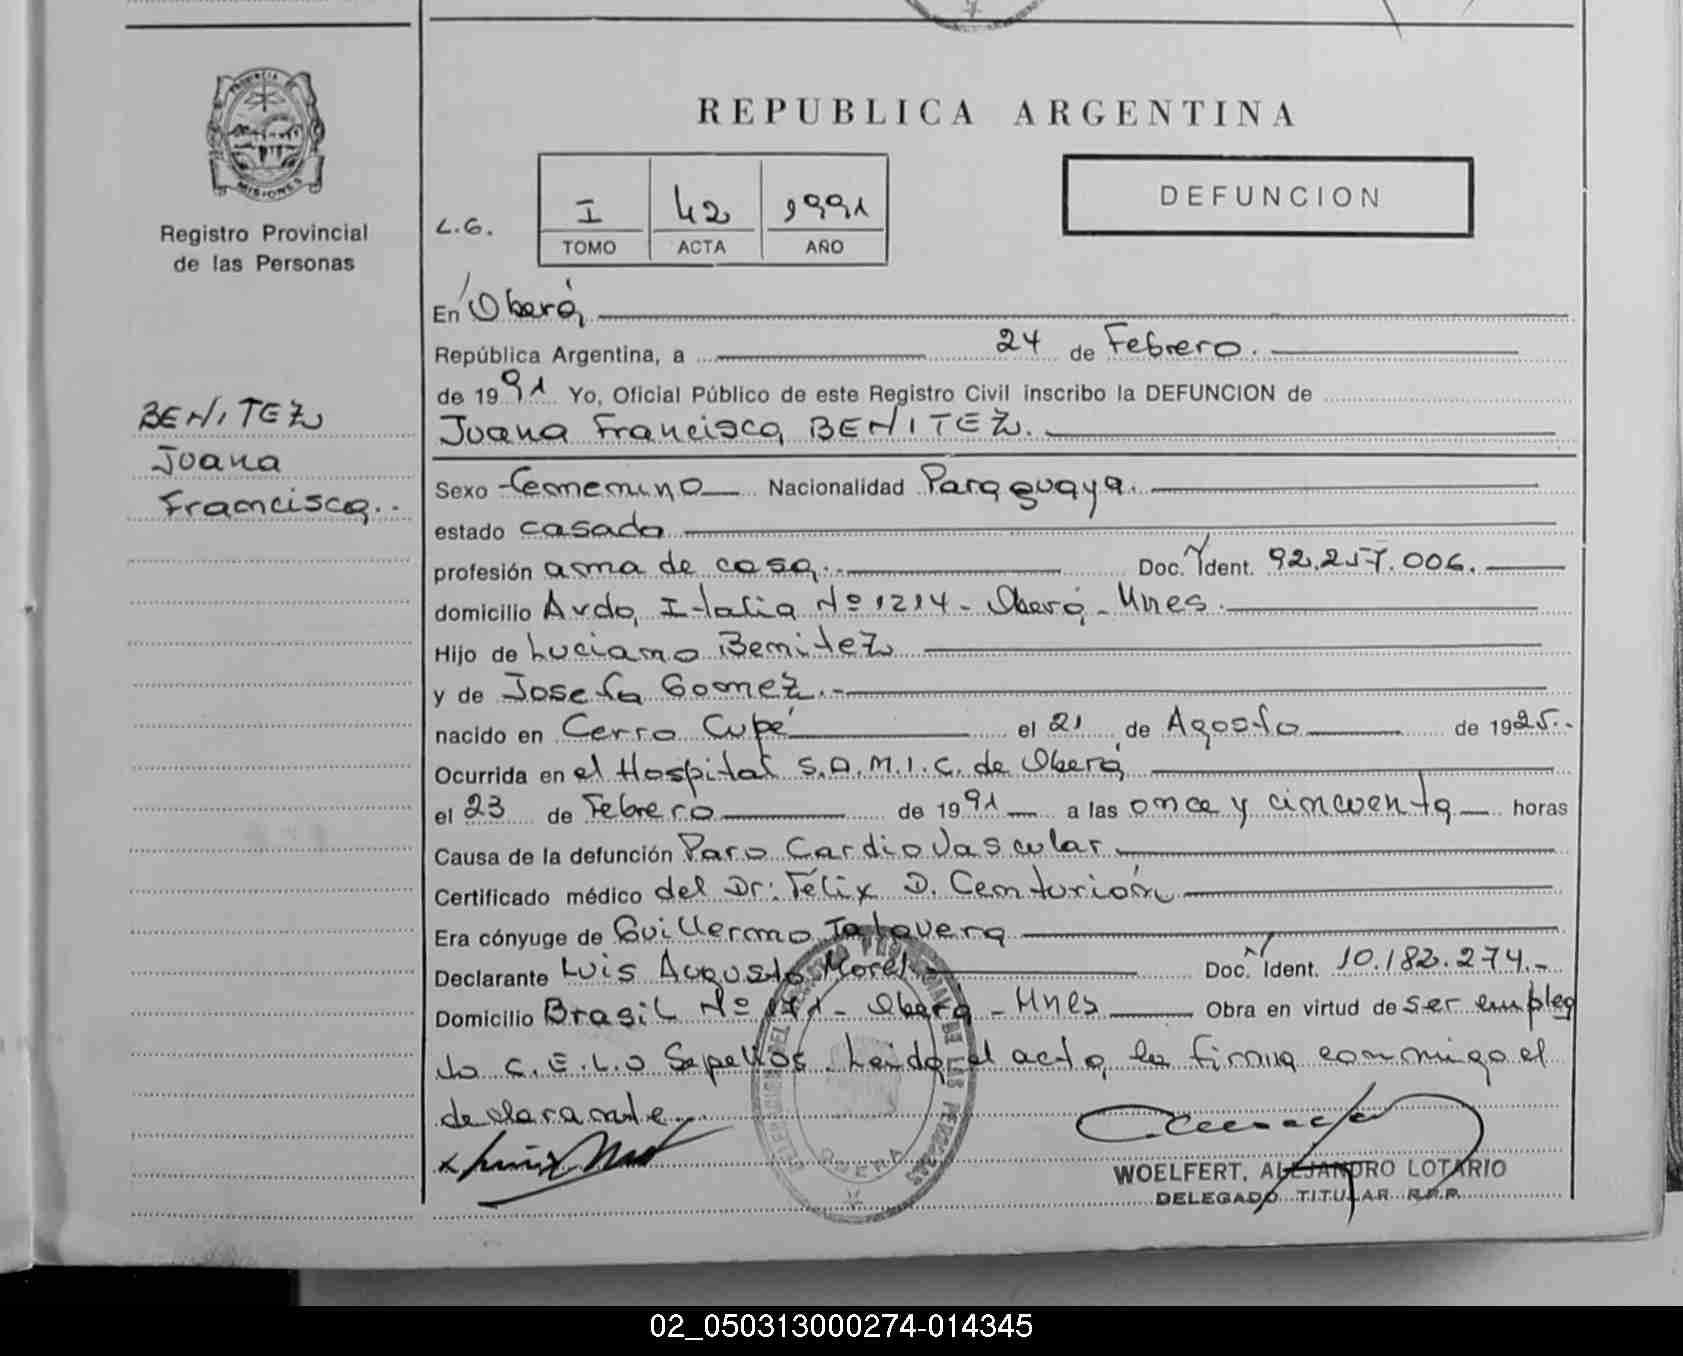 REPUBLICA ARGENTINA
PROVINCIA DE
MISIONES
Registro Provincial
de las Personas
L.G.
I 42 1991
TOMO ACTA AÑO
DEFUNCION
BENITEZ
Juana
Francisca..
En Oberá,
República Argentina, a 24 de Febrero.
de 1991 Yo, Oficial Público de este Registro Civil inscribo la DEFUNCION de
Juana Francisca BENITEZ.
Sexo femenino Nacionalidad Paraguaya.
estado casada
profesión ama de casa. Doc. Ident. 92.257.006.
domicilio Avda, Italia Nº 1214 - Oberá - Mnes.
Hijo de Luciano Benitez
y de Josefa Gomez.
nacido en Cerro Cupé el 21 de Agosto de 1925.
Ocurrida en el Hospital S.A.M.I.C. de Oberá
el 23 de Febrero de 1991 a las once y cincuenta horas
Causa de la defunción Paro Cardiovascular
Certificado médico del Dr: Félix D. Centurión
Era cónyuge de Guillermo Talavera
Declarante Luis Augusto Morel Doc. Ident. 10.182.274.-
Domicilio Brasil Nº 171 - Oberá - Mnes Obra en virtud de ser emplea
do C.E.L.O Sepelios. Leida el acta, la firma conmigo el
declarante.
OBERA
WOELFERT, ALEJANDRO LOTARIO
DELEGADO TITULAR R.P.P.
02_050313000274-014345